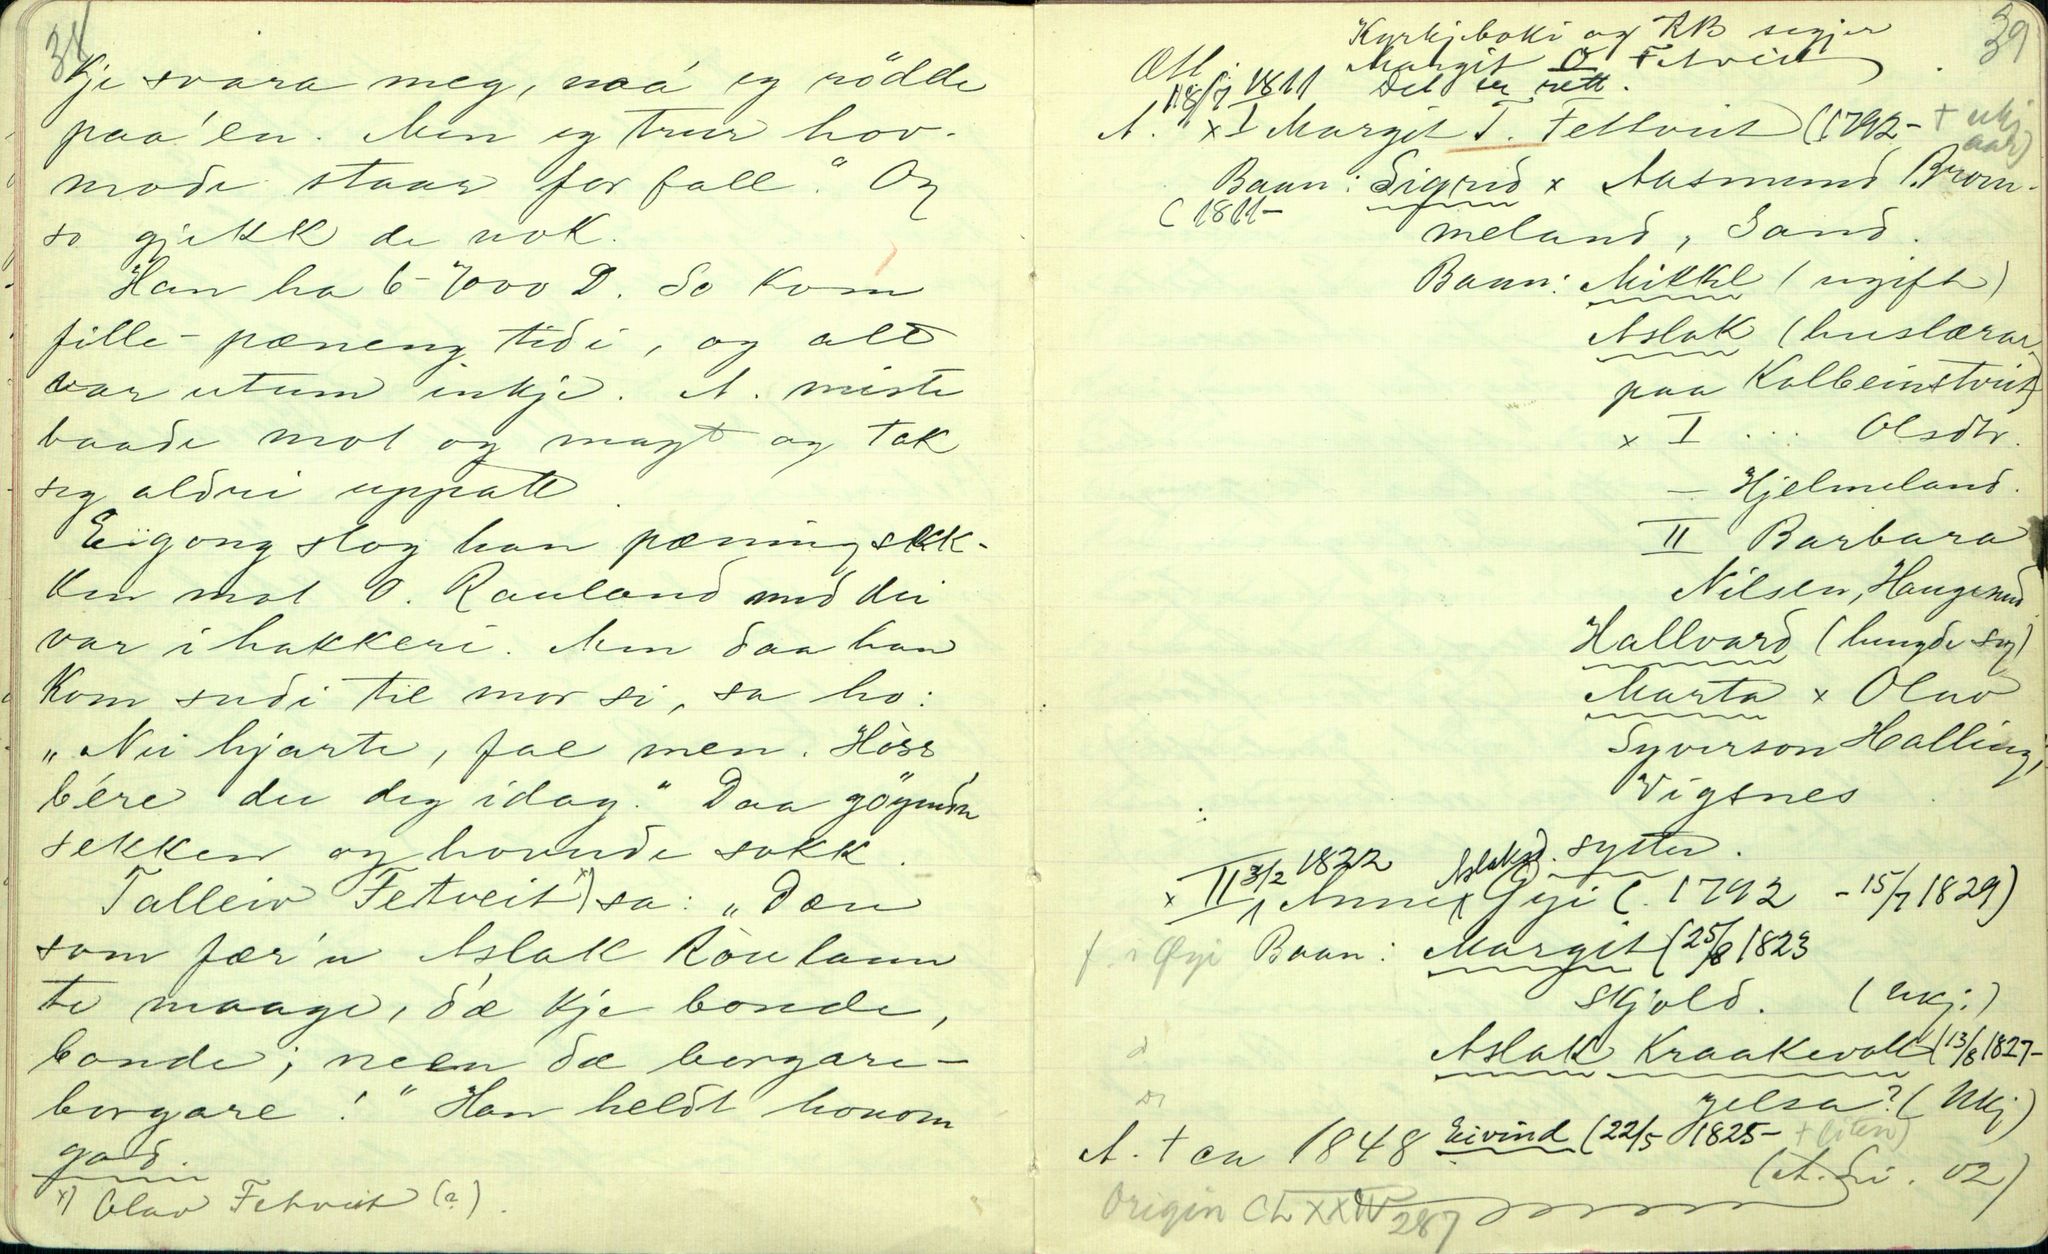 38
kje svara meg, naa' eg rödde
paa 'en. Men eg trur hov-
mode staar for fall." Og
so gjekk de nok.
Han ha 6-7000 D. So kom
fille-pæneng tidi, og alt
var utum inkje. A. miste
baade mot og magt og tok
seg aldri uppatt.
Eigong slog han pæning sekk-
ken mot O. Rauland med dei
var i hakkeri. Men daa han
kom sudi til mor si, sa ho:
„Nei hjarte, fal men. Höss
bére du deg idag." Daa
sekken og hovude sokk.
Talleiv Fetveit x) sa: „Dæn
som fær'n Aslak Röuland
te maage, d'æ kje bonde,
bonde; neen dæ borgare-
borgare!" Han heldt honom
god.
x) Olav Fetveit (?).
39
Kyrkjeboki og RB segjer
Ætt: Margit O Fetveit.
18/7 1811 Det er rett.
A. x I Margit T. Fettveit (1792- + ukj
aar)
Baan: Sigrid x Aasmund Brom-
(1811- meland, Sand.
Baan: Mikkel (ugift)
Aslak (huslærar
paa Kolbeinstveit)
x I ... Olsdtr.
— Hjelmeland.
II Barbara
Nilsen, Haugesund
Hallvard (hengde seg)
Marta x Olav
Syverson Halling,
Vigsnes.
Aslaksd. syster.
x II 3/2 1822 Anne Gyi (. 1792 - 15/7 1829)
f. i Øyi Baan: Margit (25/8 1823
Skjold. (ukj.)
Aslak Kraakevoll (13/8 1827-
Jelsa? (Ukj)
A. + ca 1848 Eivind (22/5 1825- + liten)
(A. Li. 02)
Origin CLXXIV 287